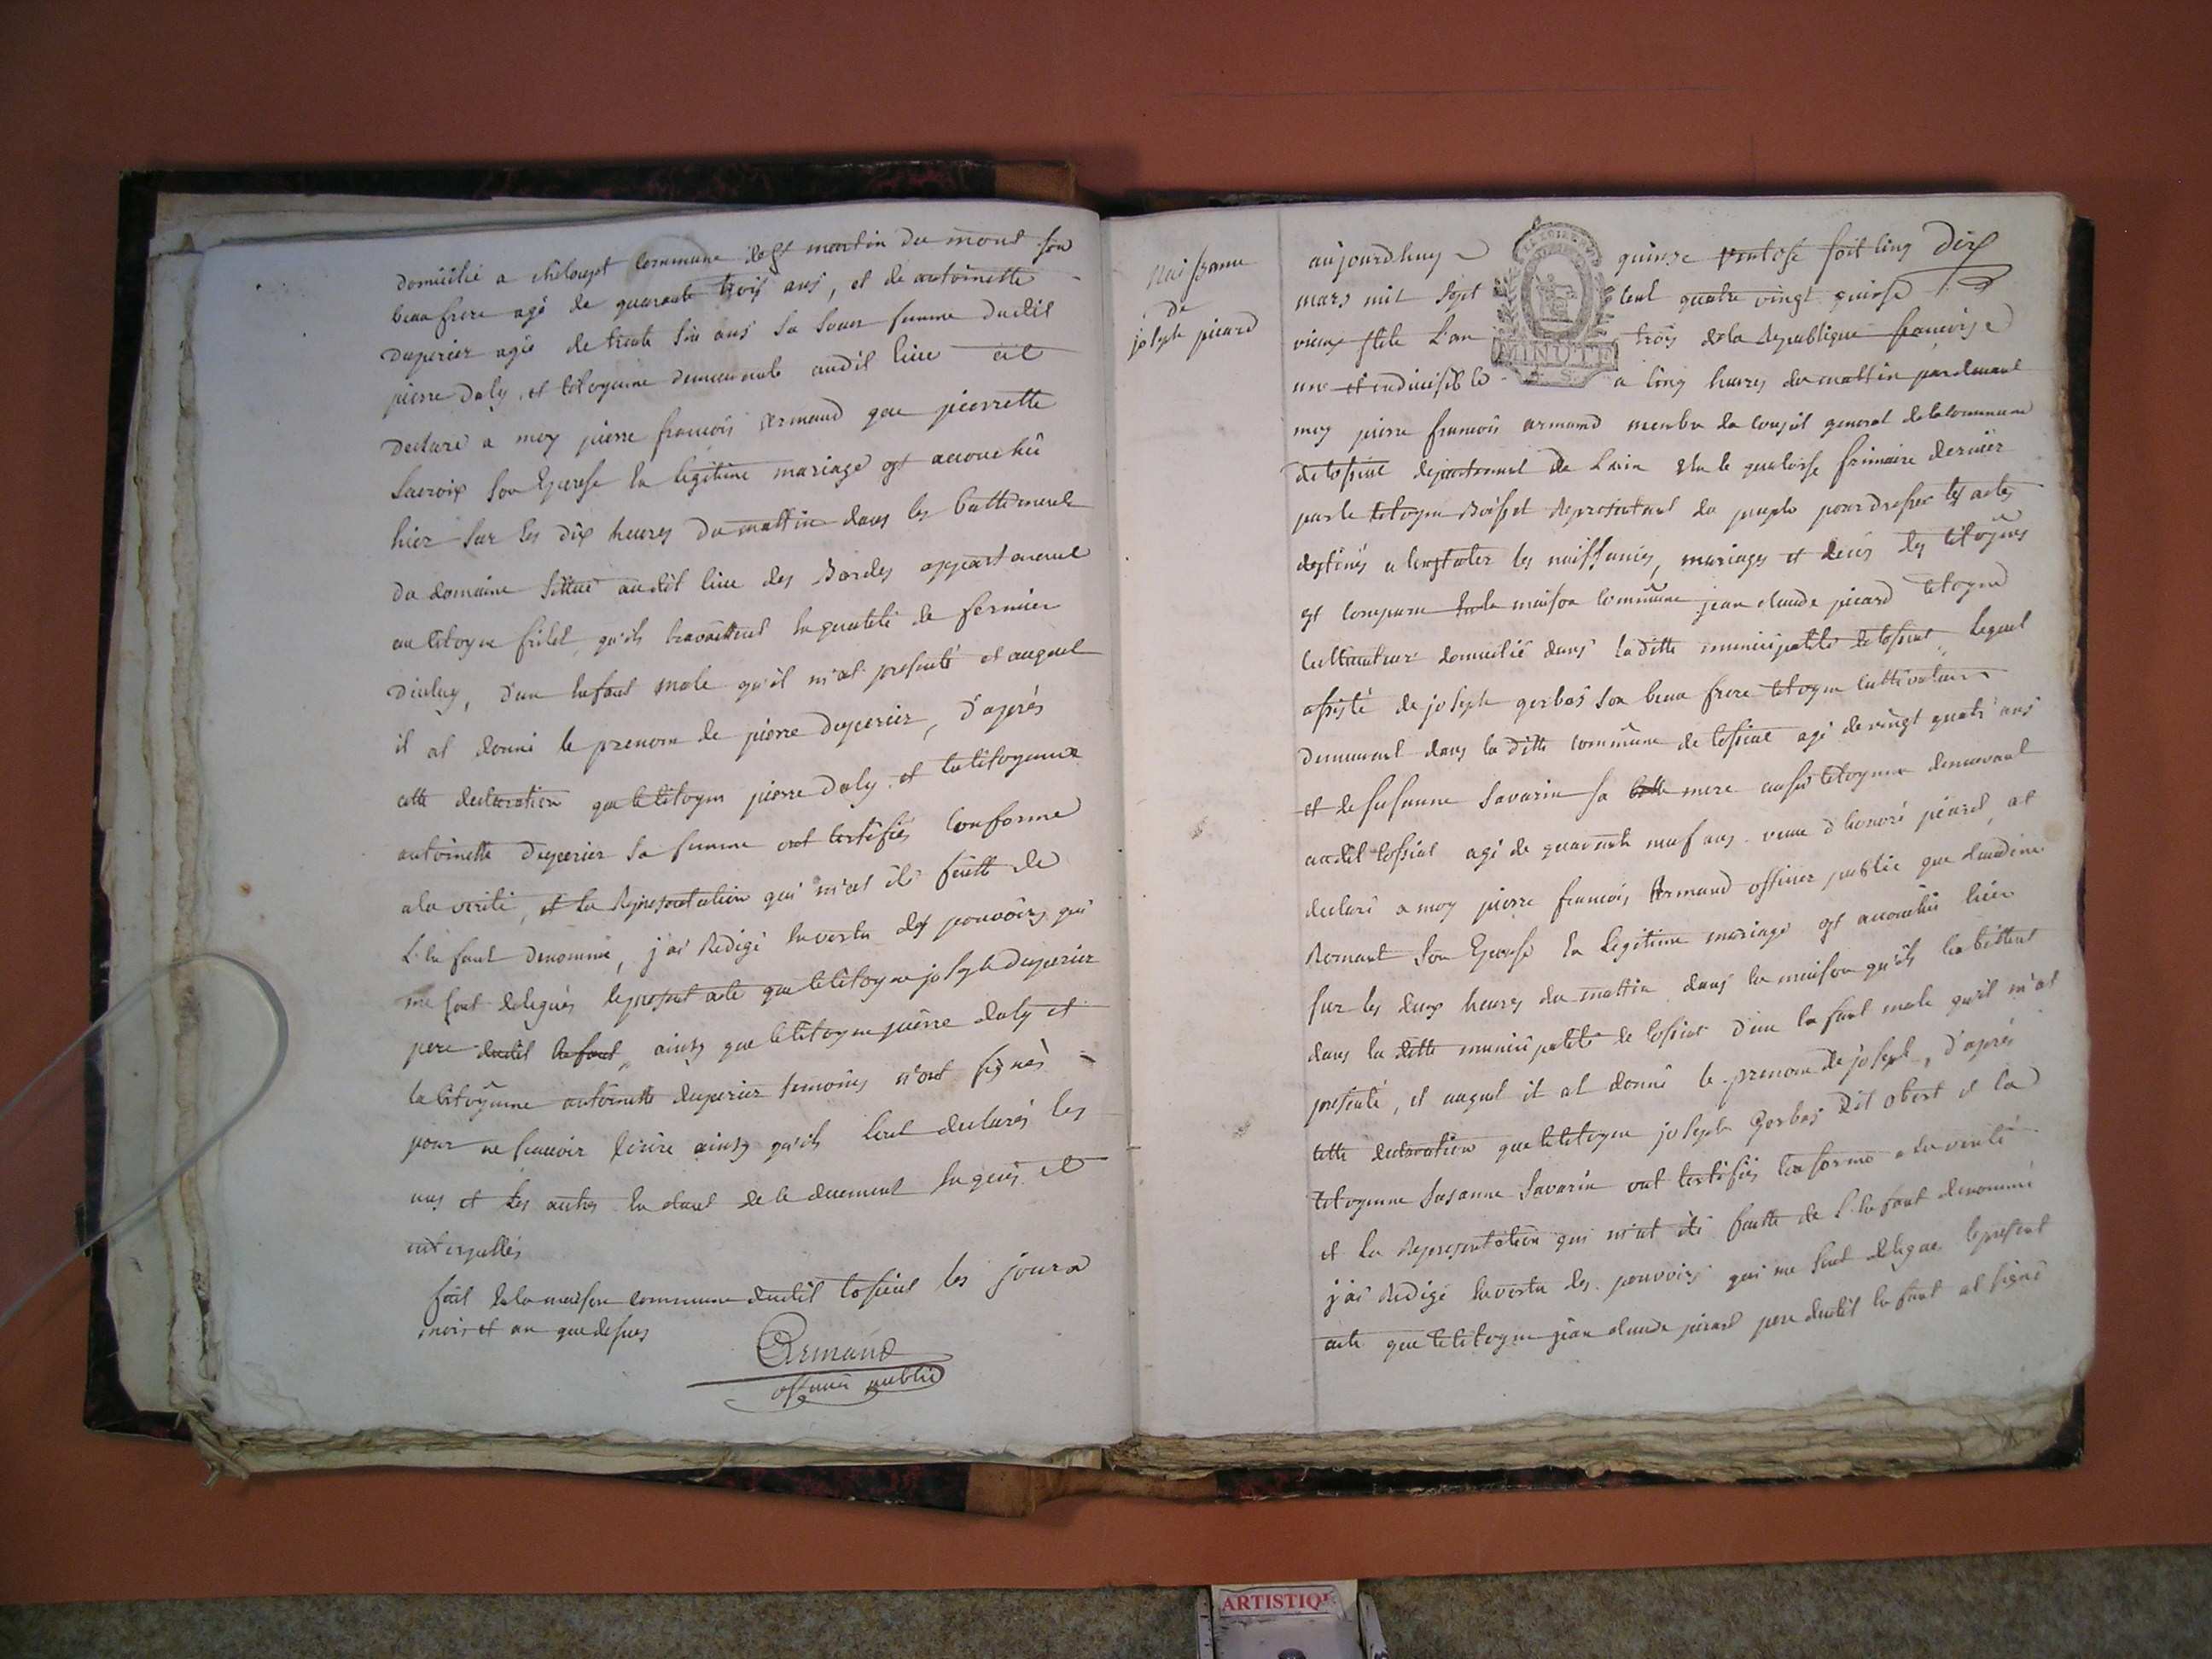 domicilié a chiloup commune de st martin du mont son
beau frere agé de quarante trois ans, et de antoinette
duperier agée de trente six ans sa soeur femme dudit
pierre daly, et citoyenne demeurante audit lieu at
declaré a moy pierre françois Armand que pierrette
Lacroix son Epouse En legitime mariage est accouchée
hier sur les dix heures du mattin dans les battiment
du domaine sittué audit lieu des Bordes appartenant
au citoyen frilet, qu'ils travaillent En qualité de fermier
, d'un Enfant male qu'il m'at presenté et auquel
il at donné le prenom de pierre duperier, d'après
cette declaration que le citoyen pierre daly et la citoyenne
antoinette duperier sa femme ont certifiés conforme
a la verité, et la Representation qui m'at été faitte de
L'Enfant denommé, j'ai Redigé En vertu des pouvoirs qui
me sont delegués le present acte que le citoyen joseph duperier
pere dudit Enfant, ainsy que le citoyen pierre daly et
la citoyenne antoinette duperier temoins n'ont signés
pour ne sçauoir Ecrire ainsy qu'ils L'ont declarés les
uns et les autres En etant de ce duement Enquis et
interpellés
fait En la maison commune dudit tossiat les jour
mois et an que dessus
Armand
officier public
Naissance
de
joseph picard
aujourdhuy quinze ventose soit cinq dix
mars mil sept cent quatre vingt quinse
vieux stile L'an trois de la Republique françoise
MINUTE
une et indivisible a cinq heures du mattin pardevant
moy pierre françois armand membre du conseil general de la commune
de tossiat departement de L'ain Elu le quatorse frimaire dernier
par le citoyen Boisset Representant du peuple pour dresser les actes
destinés a constater les naissances, mariages et decés des citoyens
est comparu En la maison commune jean claude picard citoyen
cultivateur domicilié dans laditte municipalité de tossiat, lequel
assisté de joseph gerbas son beau frere citoyen cultivateur
demeurant dans laditte commune de tossiat agé de vingt quatr'ans
et de susanne Savarin sa mere aussi citoyenne demeurant
audit tossiat agé de quarante neuf ans veuve d'honoré picard, at
declaré a moy pierre françois Armand officier public que claudine
Romant son Epouse En legitime mariage est accouchée hier
sur les deux heures du mattin dans la maison qu'ils habittent
dans la ditte municipalité de tossiat d'un Enfant male qu'il m'at
presenté, et auquel il at donné le prenom de joseph, d'après
cette declaration que le citoyen joseph Gerbas dit obert et la
citoyenne Susanne Savarin ont certifiés conforme a la verité
et la Representation qui m'at été faitte de L'Enfant denommé
j'ai Redigé En vertu des pouvoirs qui me sont delegués le present
acte que le citoyen jean claude picard pere dudit Enfant at signé
ARTISTIQ